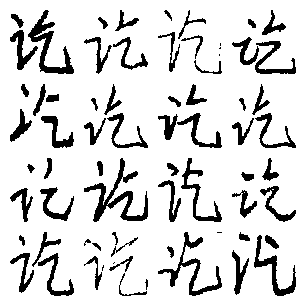 讫讫讫讫
讫讫讫讫
讫讫讫讫
讫讫讫讫